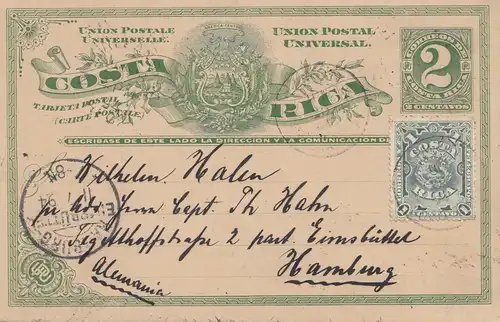 UNION POSTALE UNIVERSELLE.
UNION POSTAL UNIVERSAL.
COSTA RICA
TARJETA POSTAL
(CARTE POSTALE)
CORREOS DE COSTA RICA
2
2 CENTAVOS
ESCRIBASE DE ESTE LADO LA DIRECCIÓN Y LA COMUNICACION DEL
COSTA RICA
1 CENTAVO 1
Wilhelm Halen
Herrn Capt. Th Hahn
Tegetthoffstraße 2 part. Eimsbüttel
Hamburg
Alemania